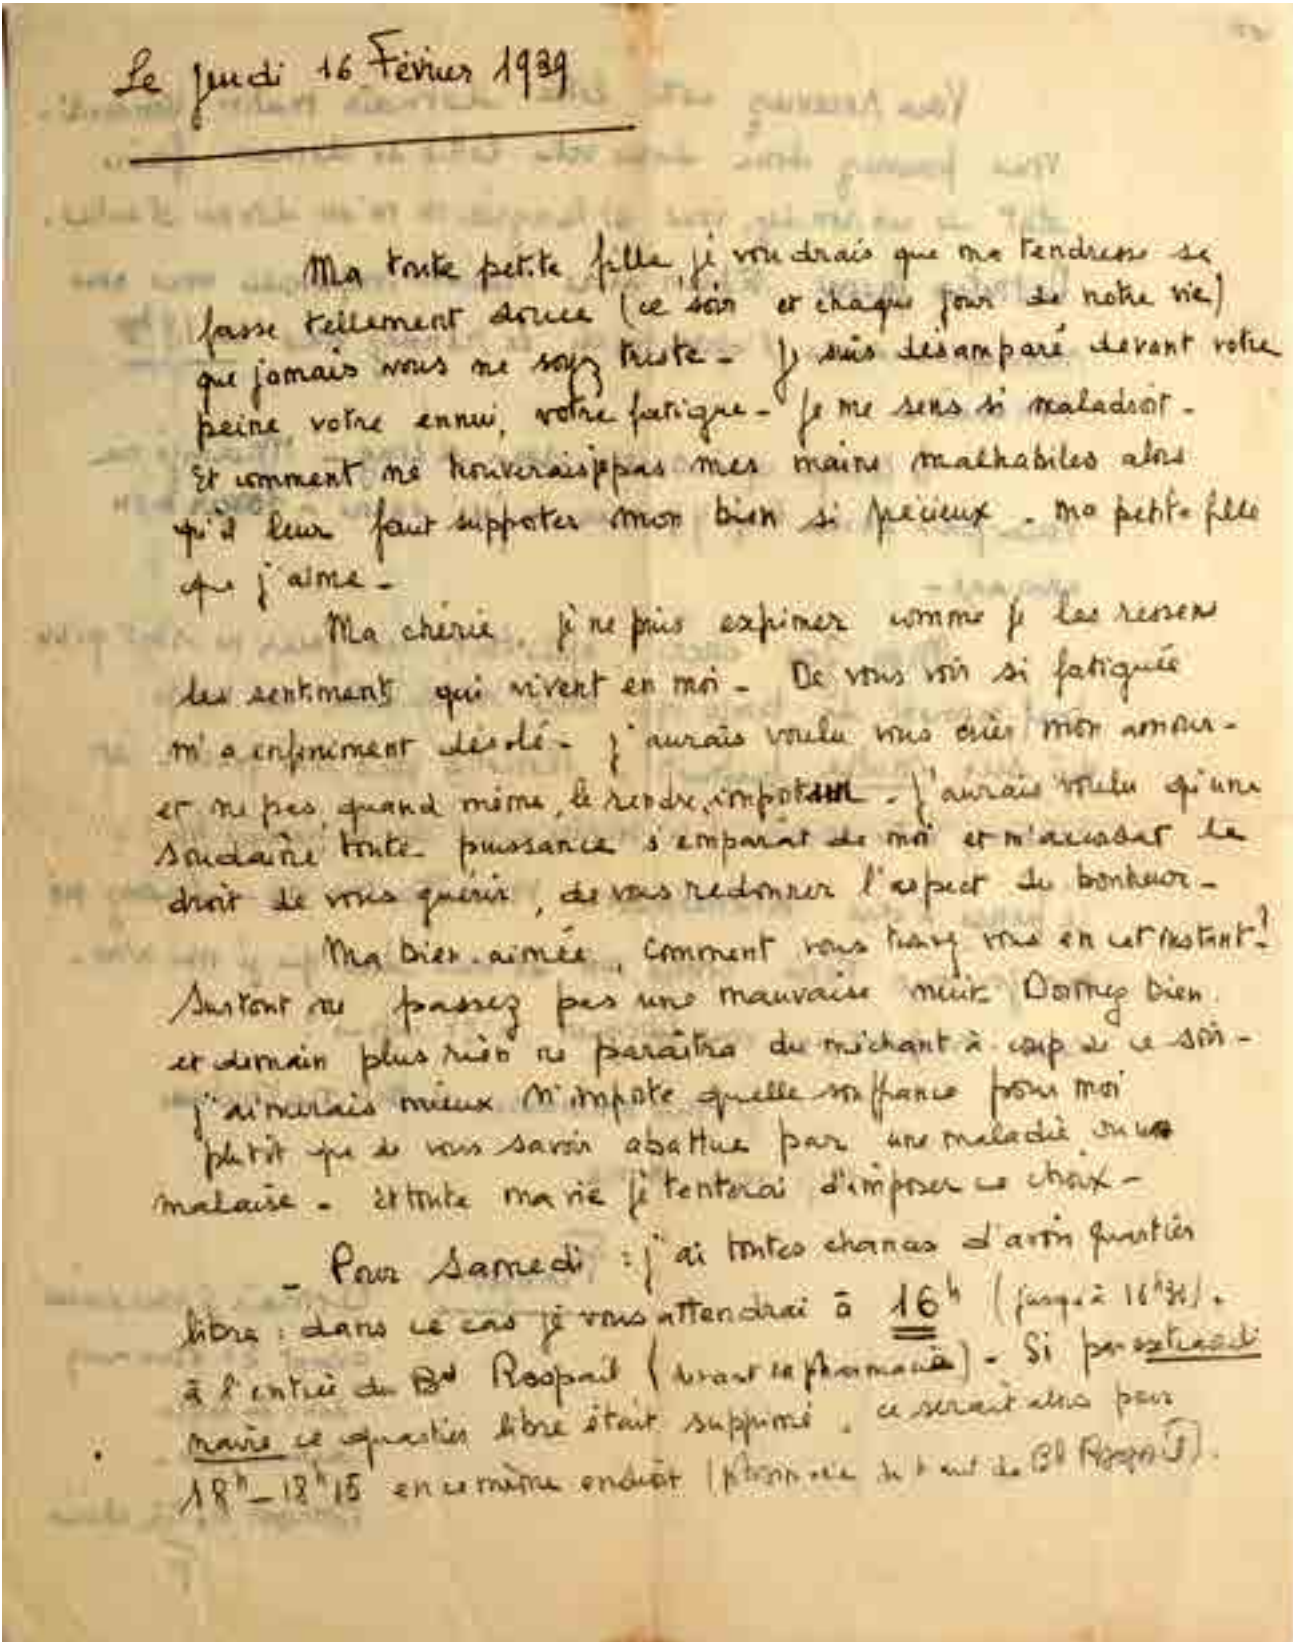 Le jeudi 16 Février 1939
Ma toute petite fille, je voudrais que ma tendresse se
fasse tellement douce (ce soir et chaque jour de notre vie)
que jamais vous ne soyez triste - Je suis désamparé devant votre
peine votre ennui, votre fatigue - Je me sens si maladroit -
Et comment ne trouverais-je pas mes mains malhabiles alors
qu'il leur faut supporter mon bien si précieux. ma petite fille
que j'aime -
Ma chérie, je ne puis exprimer comme je les ressens
les sentiments qui vivent en moi - De vous voir si fatiguée
m'a infiniment désolé - j'aurais voulu vous crier mon amour -
et ne pas, quand même, le rendre, important. J'aurais voulu qu'une
soudaine toute puissance s'emparât de moi et m'accordât le
droit de vous guérir, de vous redonner l'aspect du bonheur -
Ma bien-aimée, comment vous trouvez vous en cet instant?
Surtout ne passez pas une mauvaise nuit. Dormez bien.
et demain plus rien ne paraîtra du méchant à-coup de ce soir -
j'aimerais mieux n'importe quelle souffrance pour moi
plutôt que de vous savoir abattue par une maladie ou un
malaise - et toute ma vie je tenterai d'imposer ce choix -
- Pour Samedi : j'ai toutes chances d'avoir quartier
libre : dans ce cas je vous attendrai à 16h (jusqu'à 16h30).
à l'entrée du Bd Raspail (devant la pharmacie) - Si par extraordi
naire ce quartier libre était supprimé, ce serait alors pour
18h - 18h15 en ce même endroit (pharmacie du haut du Bd Raspail).